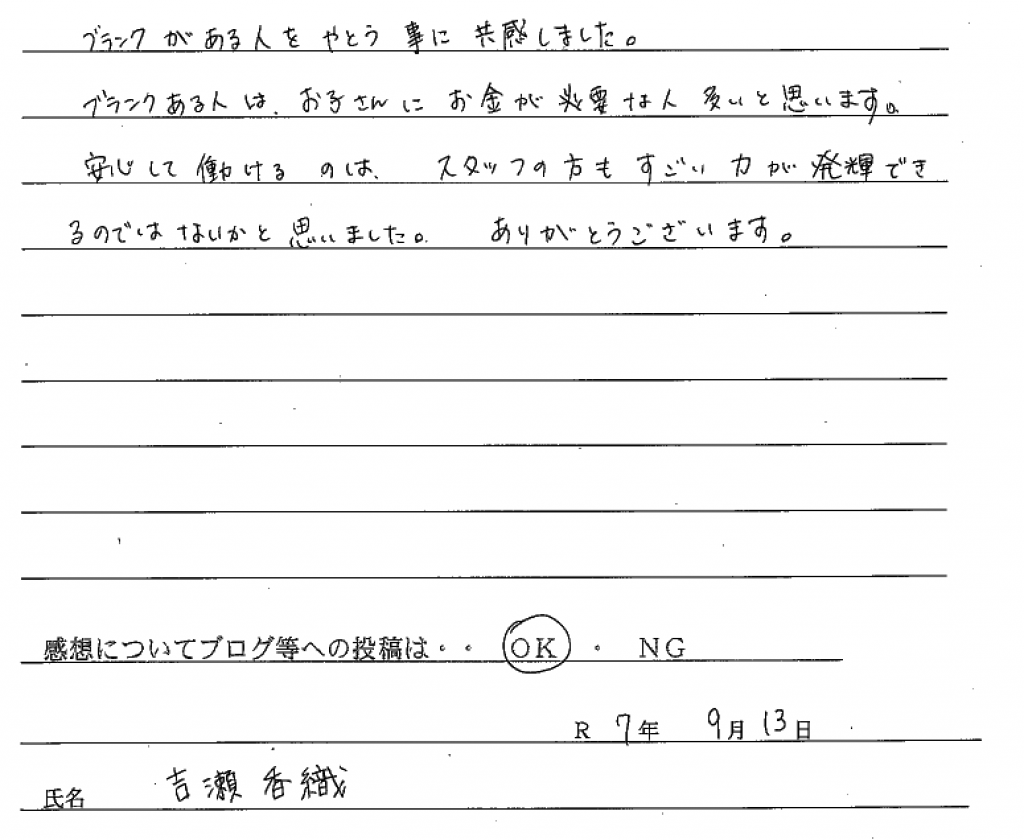 ブランクがある人をやとう事に共感しました。
ブランクある人は、お子さんにお金が必要な人多いと思います。
安心して働けるのは、スタッフの方もすごい力が発輝でき
るのではないかと思いました。ありがとうございます。
感想についてブログ等への投稿は・・ OK ・ NG
R 7年 9月13日
氏名 吉瀬 香織